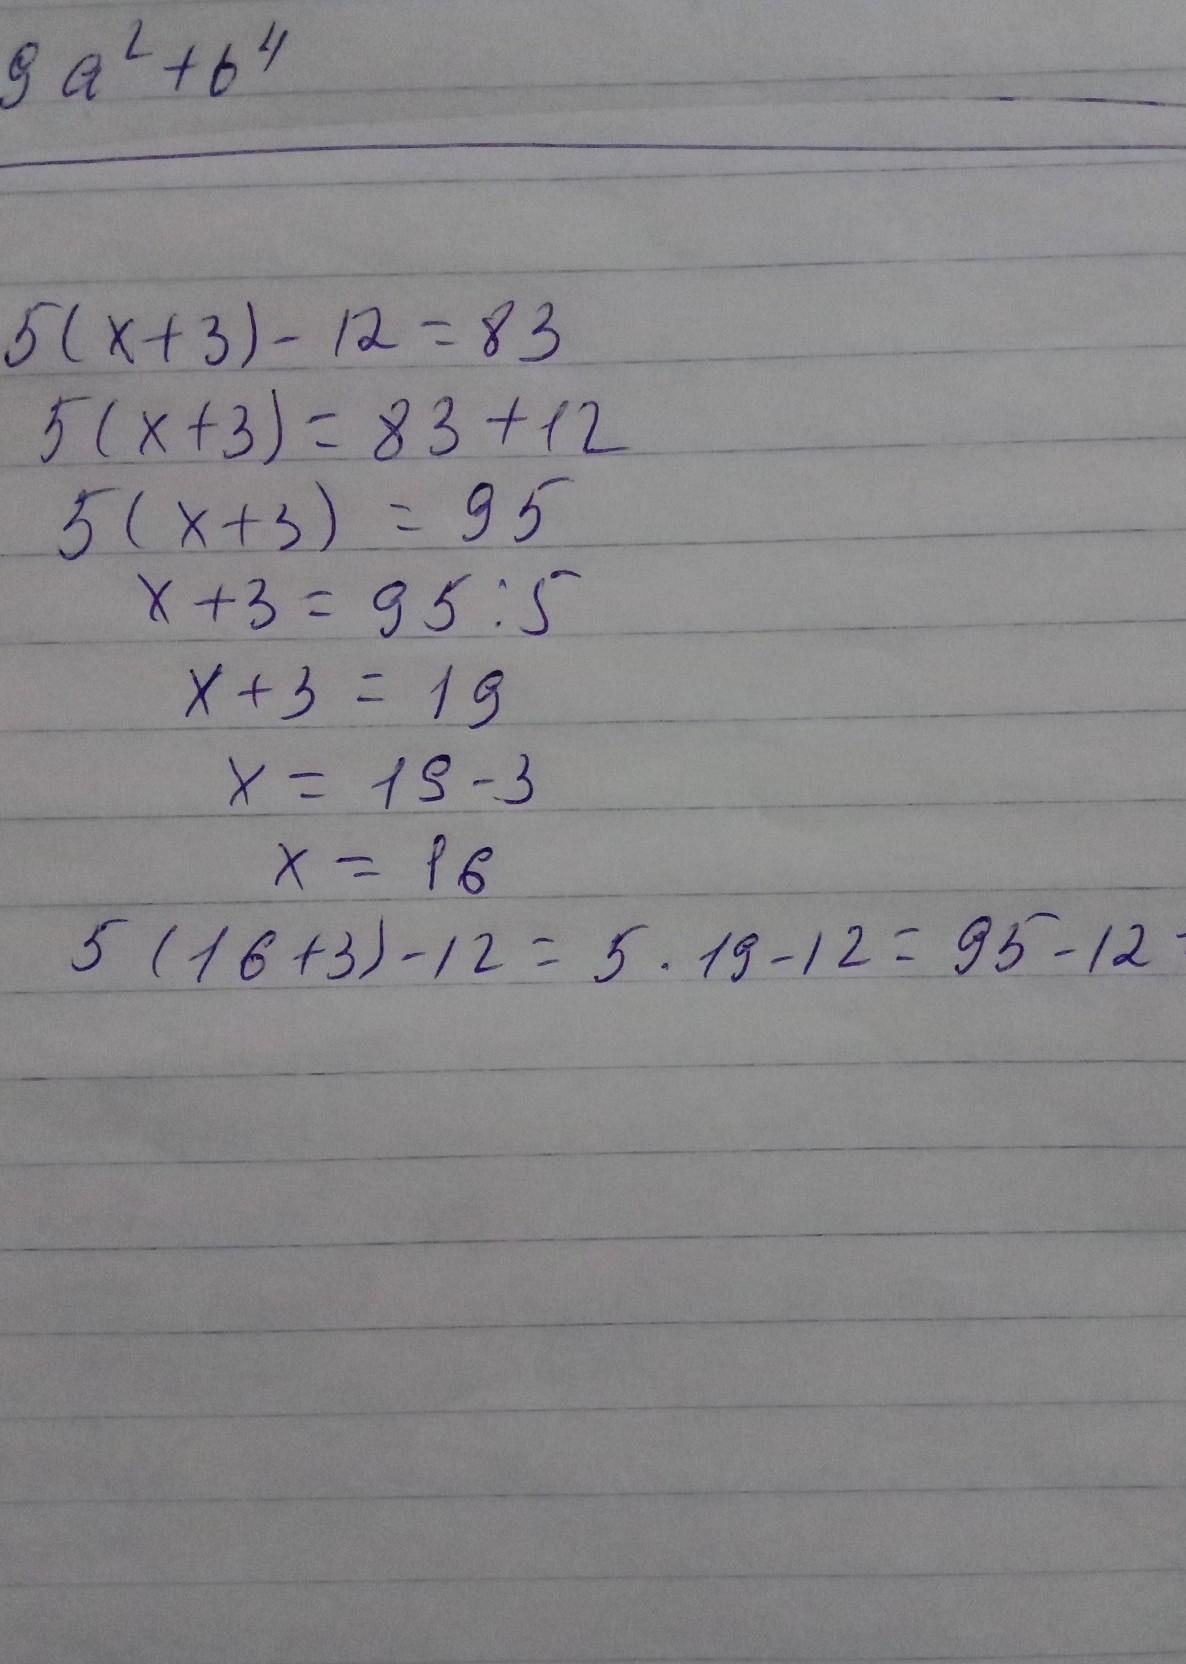 9a²+b⁴
5(x+3)-12=83
5(x+3)=83+12
5(x+3)=95
x+3=95:5
x+3=19
x=19-3
x=16
5(16+3)-12=5·19-12=95-12=